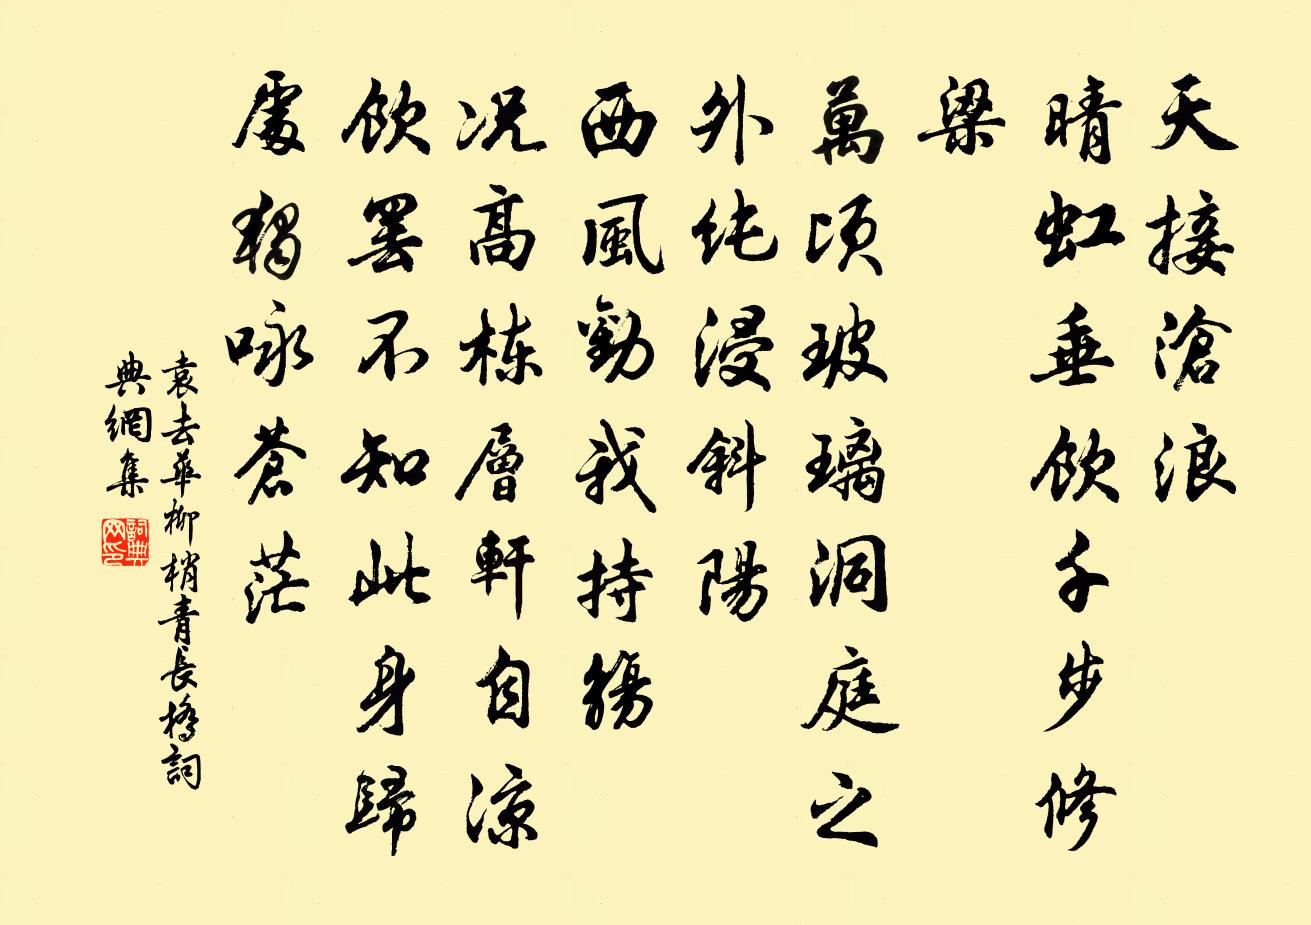 天接滄浪
晴虹垂飲千步修
梁
萬頃玻璃洞庭之
外純浸斜陽
西風勁我持觴
况高棟層軒自凉
飲罢不知此身歸
處獨咏蒼茫
袁去華柳梢青長橋詞
典網集
詞典
网印